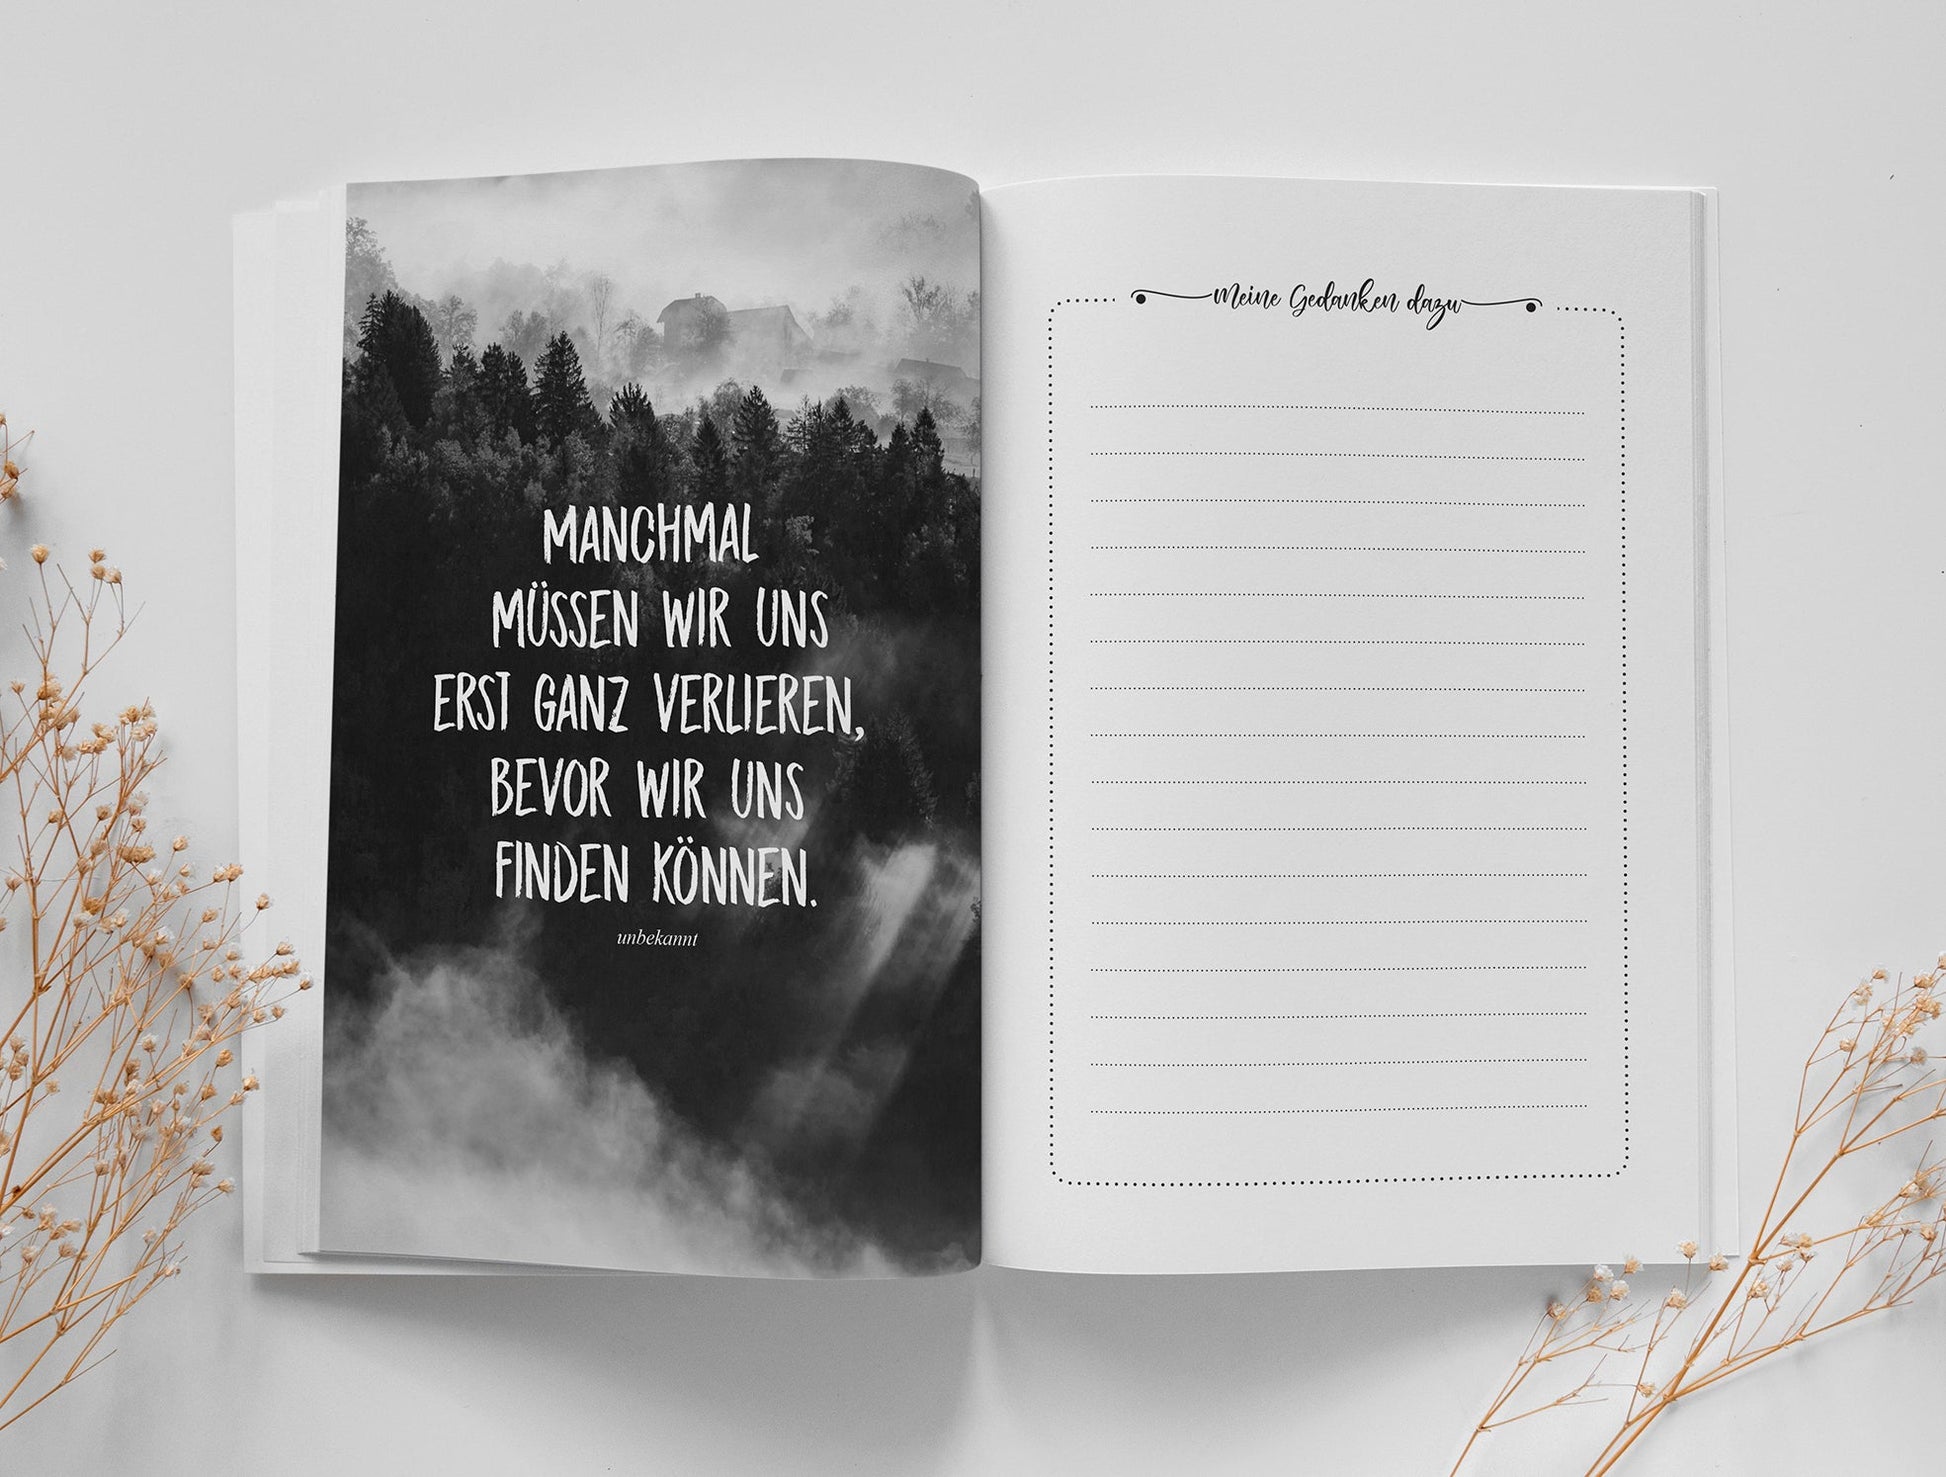 MANCHMAL
MÜSSEN WIR UNS
ERST GANZ VERLIEREN,
BEVOR WIR UNS
FINDEN KÖNNEN.
unbekannt
Meine Gedanken dazu